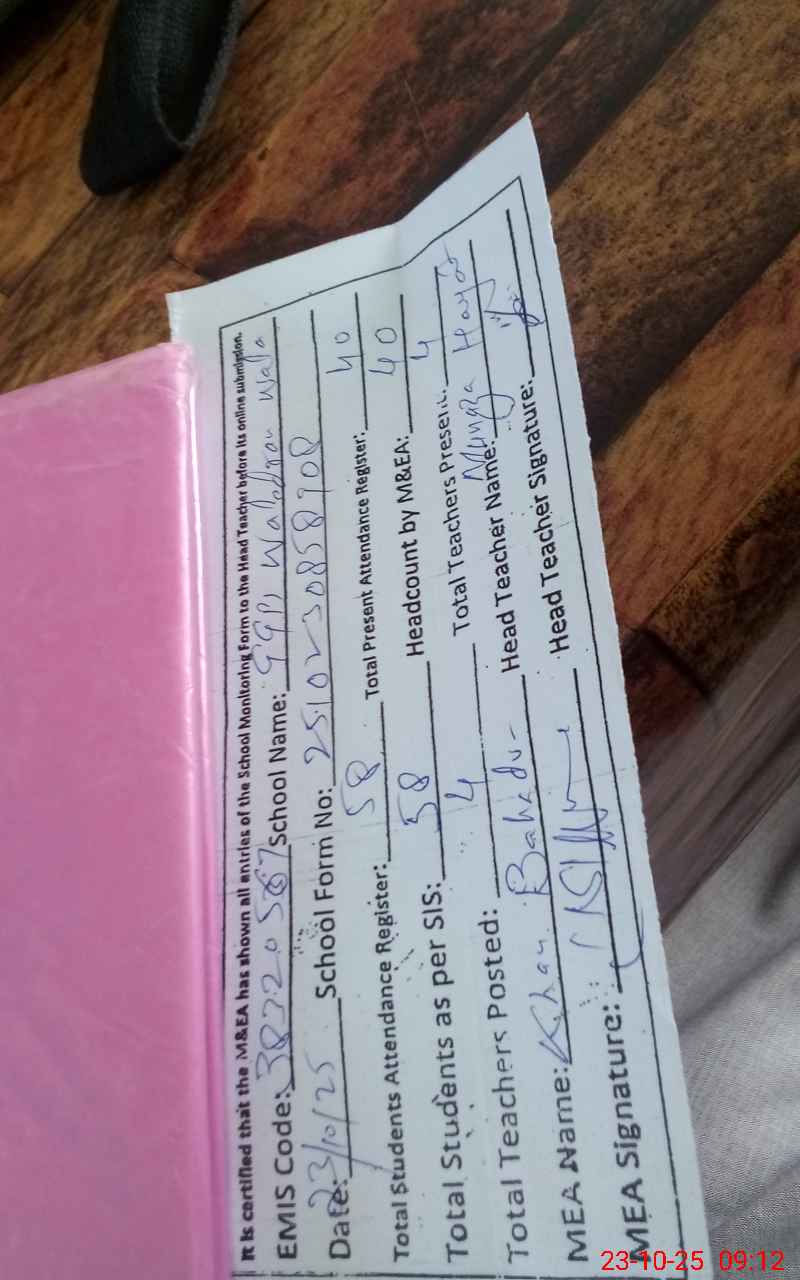 It is certified that the M&EA has shown all entries of the School Monitoring Form to the Head Teacher before its online submission.
EMIS Code: 38320587 School Name: GGPS Waledgan wala
Date: 23/10/25 School Form No: 2510230858908
Total Students Attendance Register: 58 Total Present Attendance Register: 40
Total Students as per SIS: 58 Headcount by M&EA: 40
Total Teachers Posted: 4 Total Teachers Present: 4
MEA Name: Khan Bahadur Head Teacher Name: Hayat
MEA Signature: Head Teacher Signature:
23-10-25 09:12